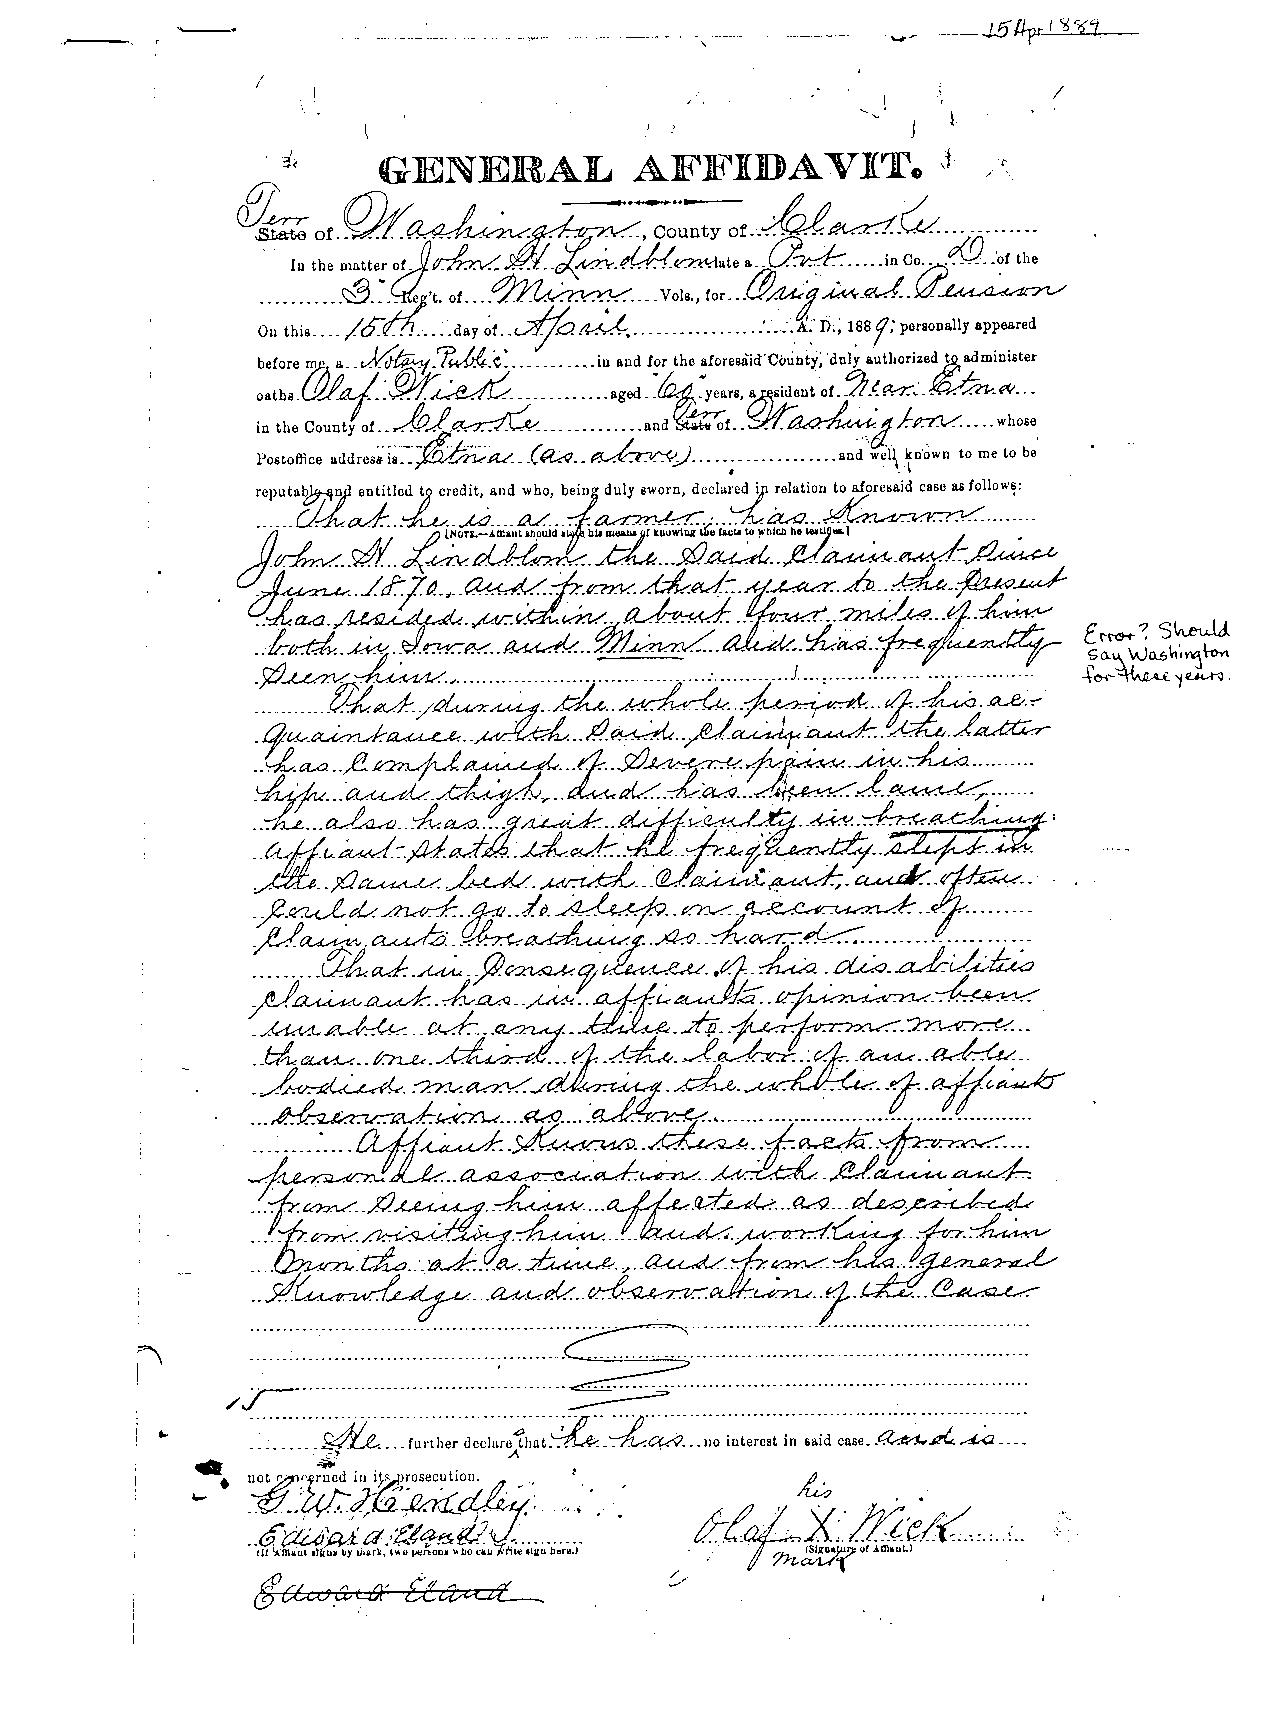 15 Apr 1889
GENERAL AFFIDAVIT.
Terr
State of Washington, County of Clarke
In the matter of John H Lindblom late a Pvt in Co. D of the
3 Reg't. of Minn Vols., for Original Pension
On this 15th day of April A. D., 1889; personally appeared
before me, a Notary Public in and for the aforesaid County, duly authorized to administer
oaths Olaf Wick aged 60 years, a resident of Near Etna
in the County of Clarke and Terr State of Washington whose
Postoffice address is Etna (as above) and well known to me to be
reputable and entitled to credit, and who, being duly sworn, declared in relation to aforesaid case as follows:
That he is a farmer, has Known
[NOTE.—Affiant should state his means of knowing the facts to which he testifies.]
John H Lindblom the Said Claimant Since
June 1870, and from that year to the Present
has resided within about four miles of him
both in Iowa and Minn and has frequently
Seen him.
Error? Should
say Washington
for these years.
That during the whole period of his ac-
quaintance with Said Claimant the latter
has Complained of Severe pain in his
hip and thigh, and has been lame,
he also has great difficulty in breathing.
Affiant States that he frequently slept in
the Same bed with Claimant, and often
Could not go to sleep on account of
Claimants breathing so hard.
That in Consequence of his disabilities
Claimant has in affiants opinion been
unable at any time to perform more
than one third of the labor of an able
bodied man during the whole of affiants
observation as above.
Affiant Knows these facts from
personal association with Claimant
from Seeing him affected as described
from visiting him and working for him
months at a time, and from his general
Knowledge and observation of the Case
15
He further declares that he has no interest in said case and is
not concerned in its prosecution.
G. W. Hendley
his
Edward Eland
Olaf X Wick
(If Affiant signs by mark, two persons who can write sign here.)
(Signature of Affiant.)
mark
Edward Eland